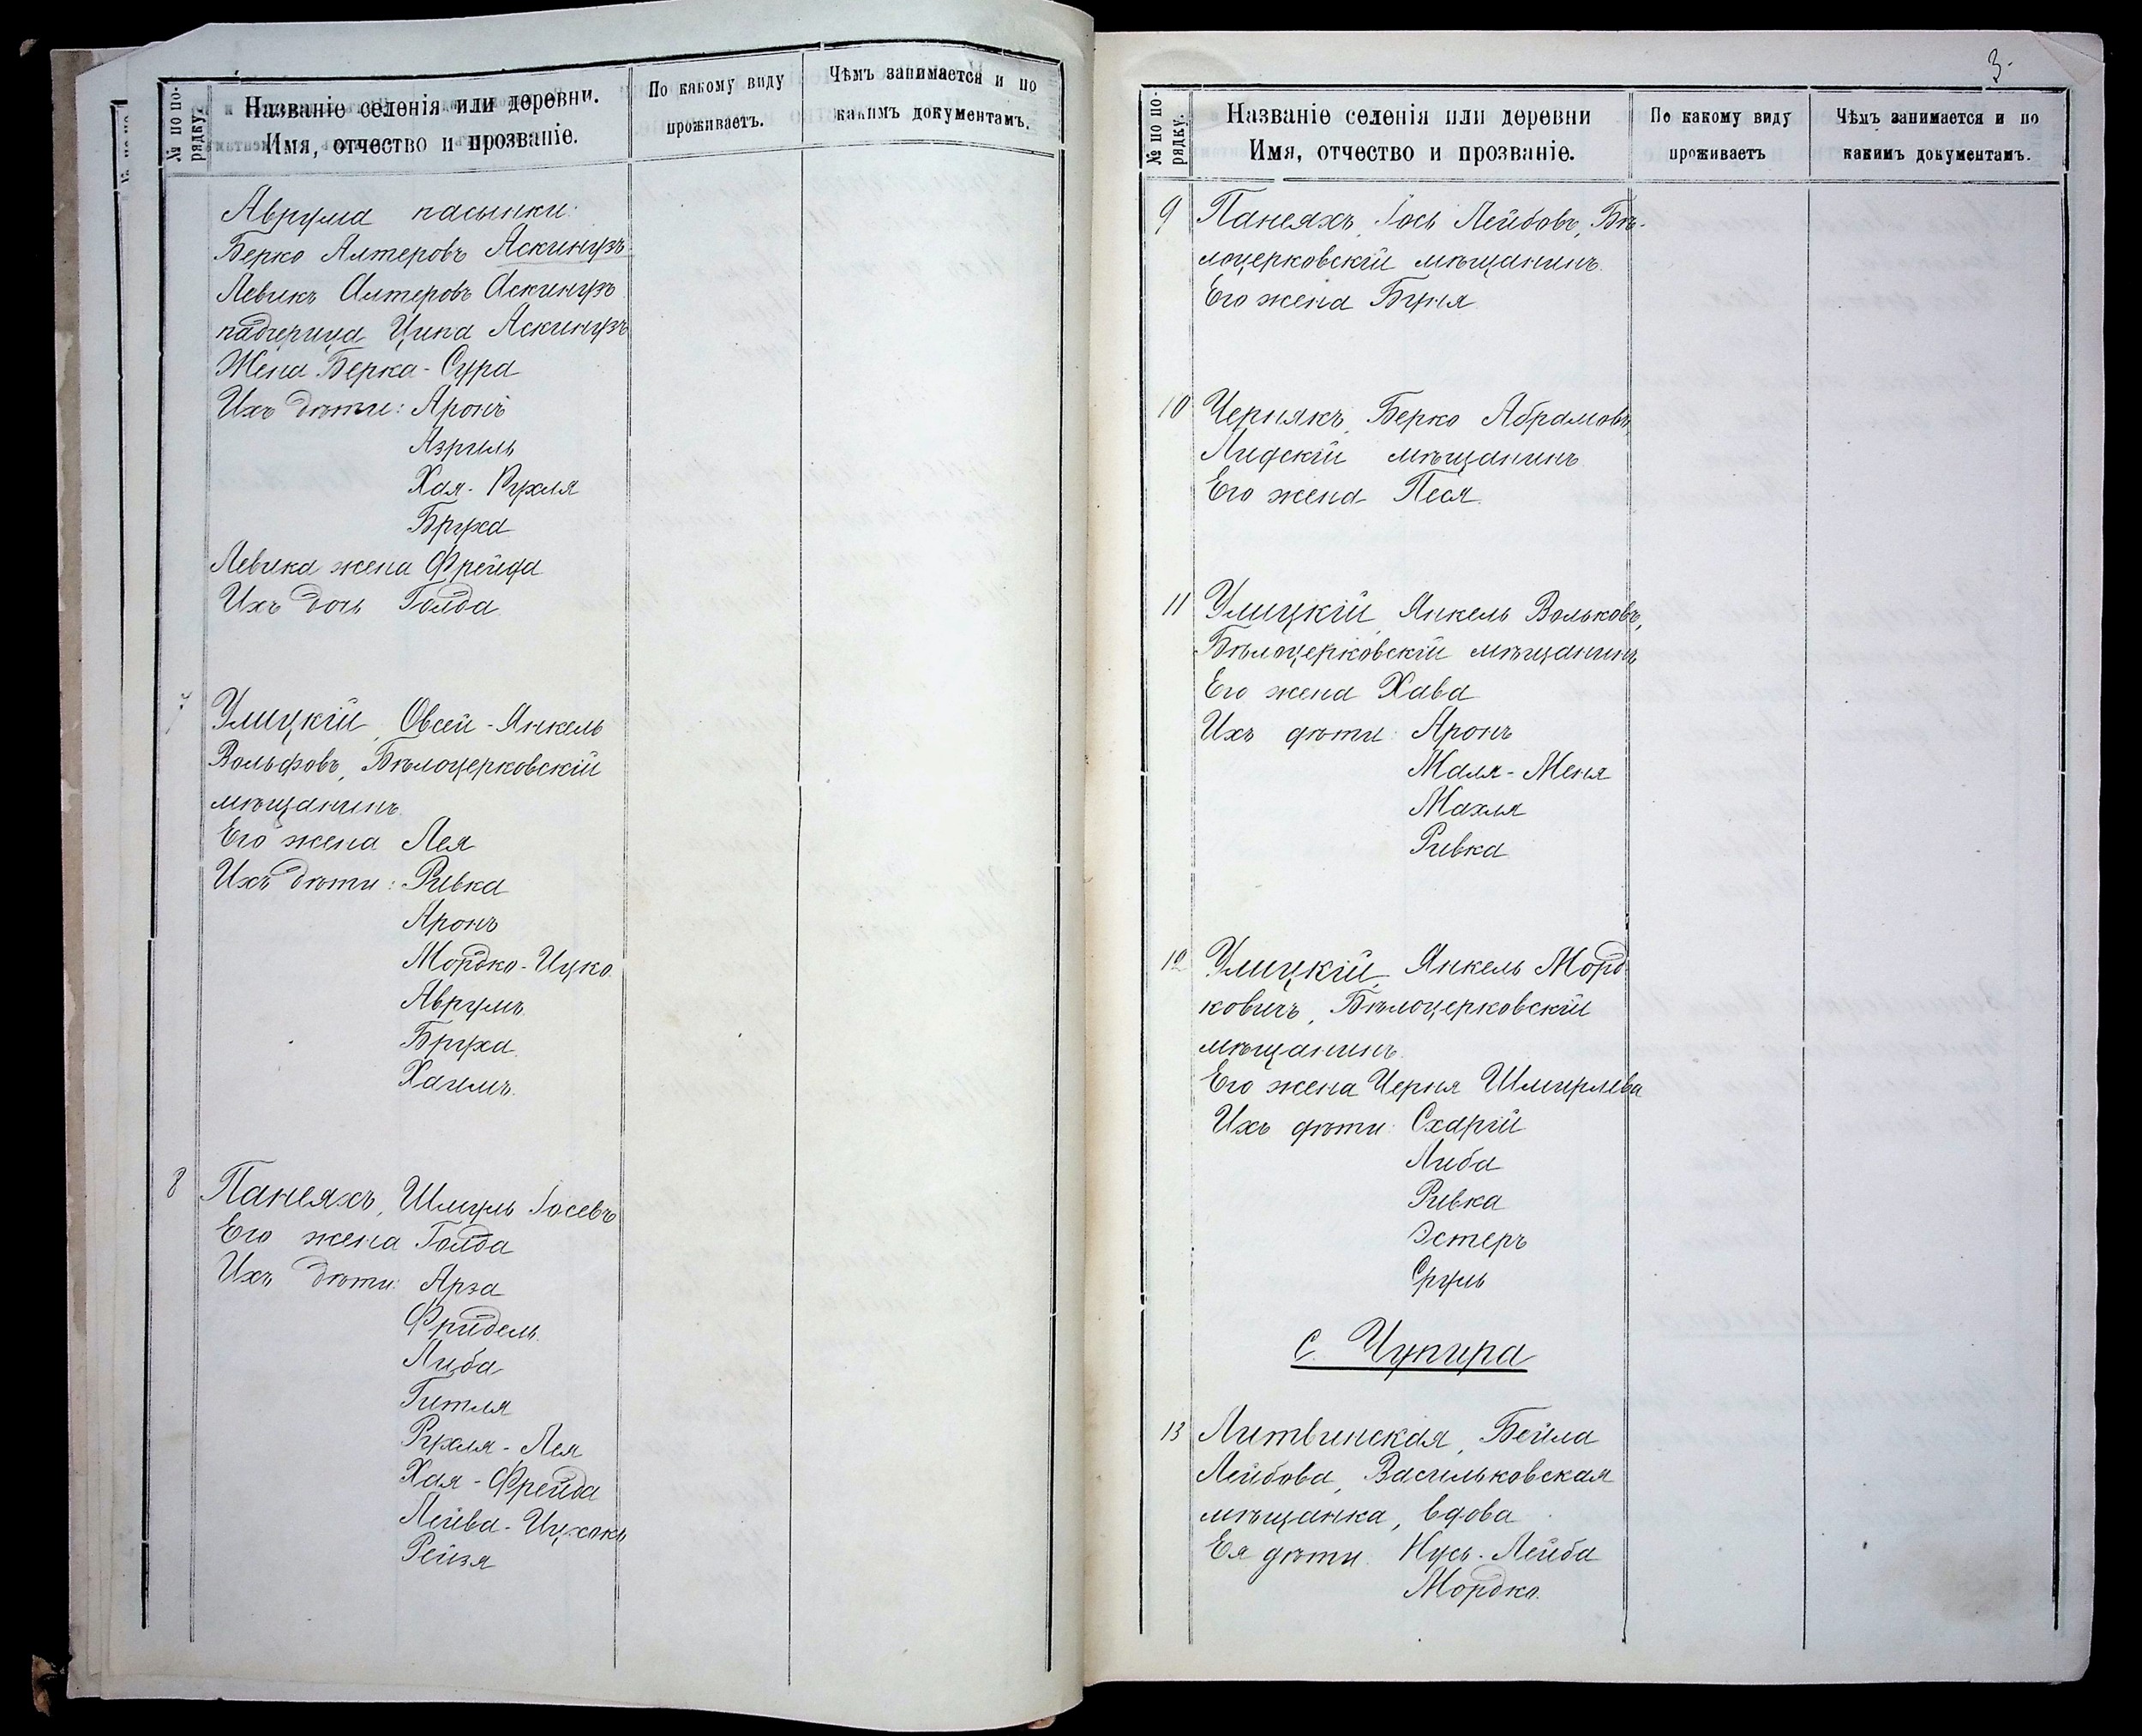 № по по-
рядку.
Названіе селенія или деревни.
Имя, отчество и прозваніе.
По какому виду
проживаетъ.
Чѣмъ занимается и по
какимъ документамъ.
Аврума пасынки:
Берко Алтеровъ Аскинузъ
Левикъ Алтеровъ Аскинузъ
падчерица Ципа Аскинузъ
Жена Берка - Сура
Ихъ дѣти: Аронъ
Азриль
Хая - Рухля
Бруха
Левика жена Фрейда
Ихъ дочь Голда
7 Улицкій, Овсей - Янкель
Вольфовъ, Бѣлоцерковскій
мѣщанинъ.
Его жена Лея
Ихъ дѣти: Ривка
Аронъ
Мордко - Ицко
Аврумъ
Бруха
Хаимъ.
8 Панеяхъ, Шмуль Іосевъ
Его жена Голда
Ихъ дѣти: Арза
Фридель
Либа
Гитля
Рухля - Лея
Хая - Фрейда
Лейва - Ицхокъ
Рейзя
3.
№ по по-
рядку.
Названіе селенія или деревни
Имя, отчество и прозваніе.
По какому виду
проживаетъ
Чѣмъ занимается и по
какимъ документамъ.
9 Панеяхъ, Іось Лейбовъ, Бѣ-
лоцерковскій мѣщанинъ.
Его жена Буня
10 Чернякъ, Берко Абрамовъ,
Лидскій мѣщанинъ
Его жена Песя.
11 Улицкій, Янкель Вольковъ,
Бѣлоцерковскій мѣщанинъ
Его жена Хава
Ихъ дѣти: Аронъ
Маля - Меня
Махля
Ривка
12 Улицкій, Янкель Морд-
ковичъ, Бѣлоцерковскій
мѣщанинъ.
Его жена Черня Шмирлева
Ихъ дѣти: Схарій
Либа
Ривка
Эстеръ
Сруль
С. Чупира
13 Литвинская, Бейла
Лейбова, Васильковская
мѣщанка, вдова
Ея дѣти: Нусь - Лейба
Мордко.